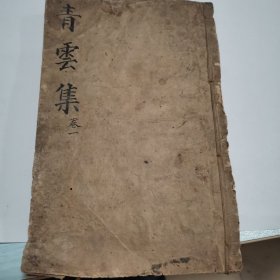 青雲集
卷一